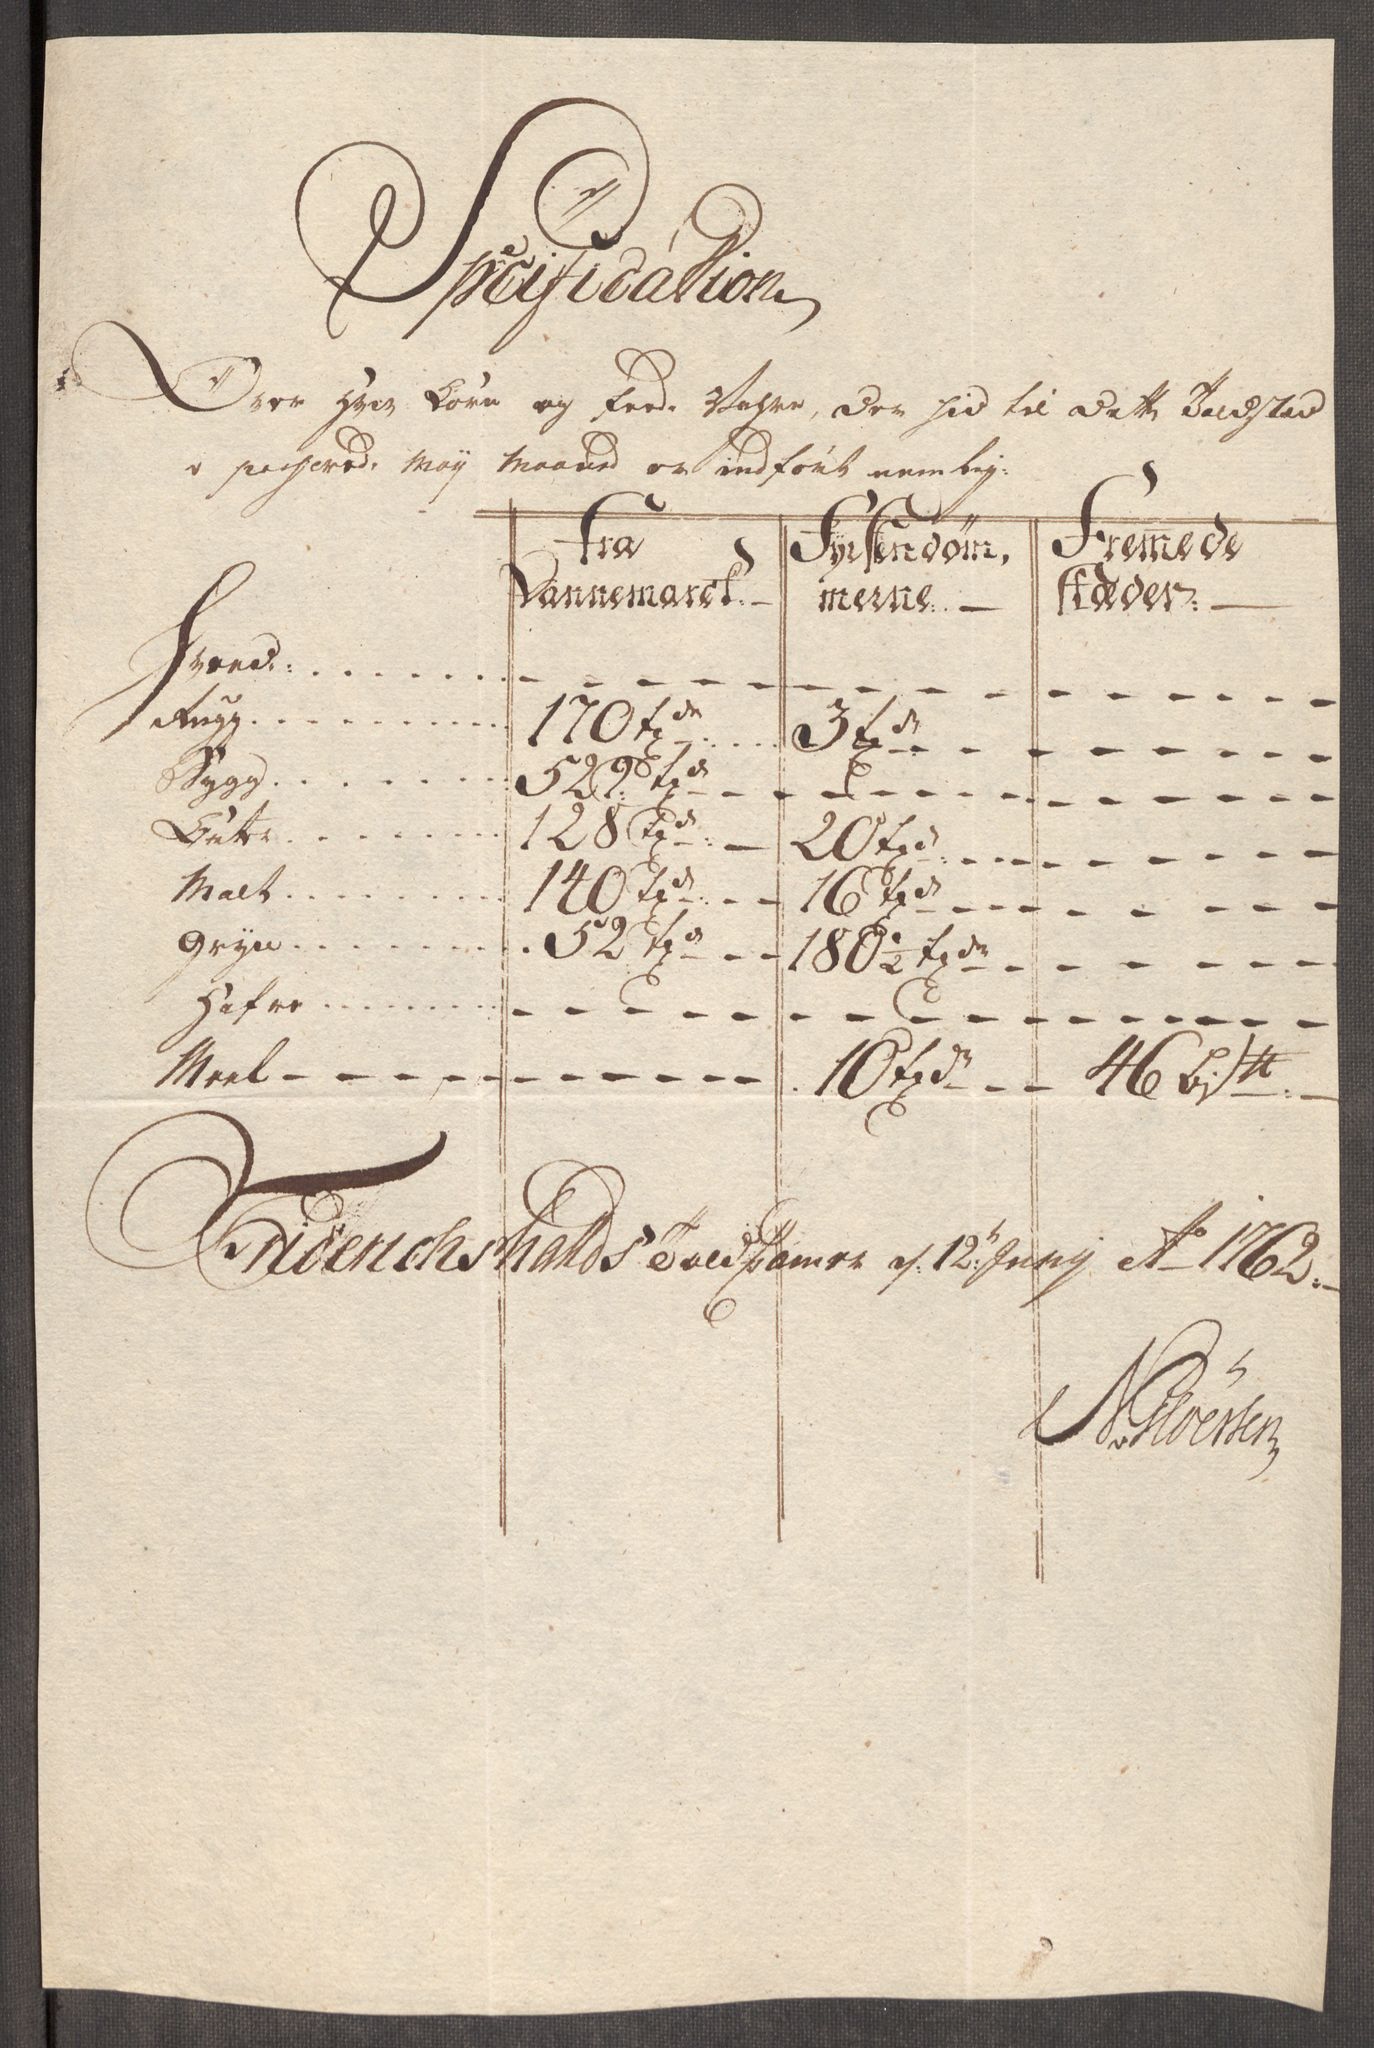 Specification
Over Hves Korn og fed. Vahre, der hid til dette Toldsted
i passerede May Maaned er indført nemlig:
Fra Dannemarck: Fyrstendømmerne: Fremmede Stæder:
Hvede:
Rug 170 tdr 3 tdr
Bygg 529 tdr
Erter 128 tdr 20 tdr
Malt 140 tdr 16 tdr
Gryn 52 tdr 180½ tdr
Hafre
Meel 10 tdr 46 
Friderichshalds Told Kamer d: 12te Junij Ao 1762.